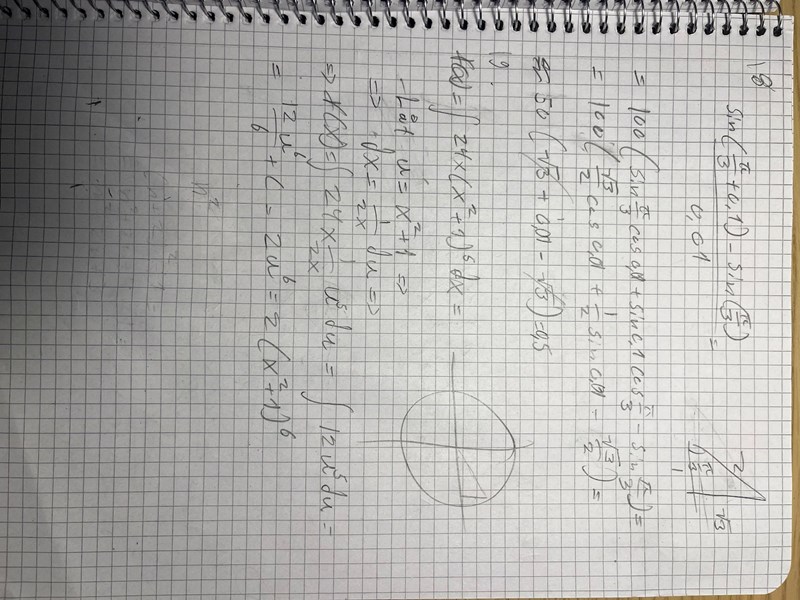 18
sin(π/3 + 0,01) - sin(π/3)
0,01
=
2 √3 π/3 1
= 100 (sin π/3 cos 0,01 + sin 0,1 cos π/3 - sin π/3) =
= 100 (√3/2 cos 0,01 + 1/2 sin 0,01 - √3/2) =
≈ 50 (√3 + 0,01 - √3) = 0,5
19
f(x) = ∫ 24x(x²+1)⁵ dx =
- Låt u = x²+1 =>
=> dx = 1/2x du =>
=> f(x) = ∫ 24x 1/2x u⁵ du = ∫ 12u⁵ du =
= 12u⁶/6 + C = 2u⁶ = 2(x²+1)⁶